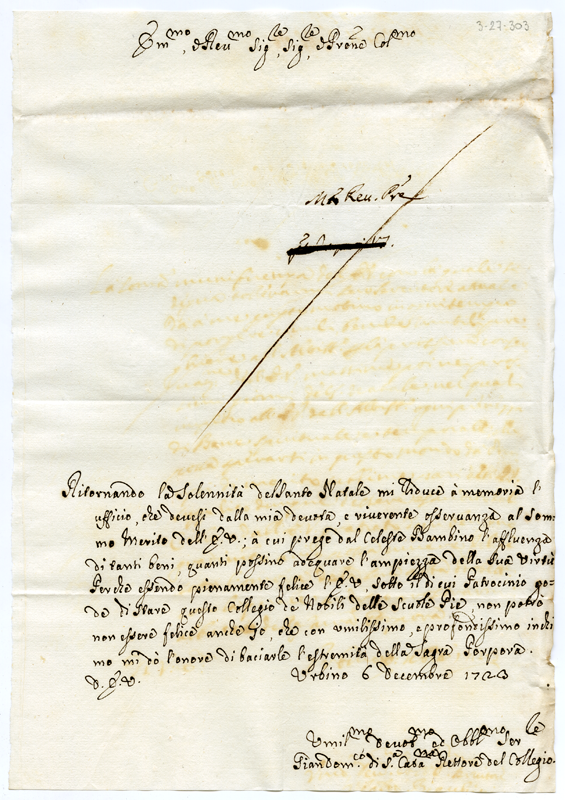 3-27-303
Em.mo, e Rev.mo Sig.re, Sig.re, e Prone Col.mo
M. Rev. Pre
Ritornando la Solennità del Santo Natale mi riduce à memoria l'
ufficio, che devesi dalla mia devota, e riverente osservanza al Som-
mo Merito dell'E.V.; à cui prego dal Celeste Bambino l'affluenza
di tanti beni, quanti possino adequare l'ampiezza della Sua virtù
Perche essendo pienamente felice l'E.V. sotto il di cui Patrocinio go-
de di stare questo Collegio de Nobili delle Scuole Pie, non potrò
non essere felice anche Io, che con umilissimo, e profondissimo inchi-
no mi dò l'onore di baciarle l'estremità della Sagra Porpora.
D.E.V. Urbino 6 Decembre 1723
Umil.mo Devot.mo ed Obbl.mo Ser.re
Giandom.co di S.a Rettore del Collegio.